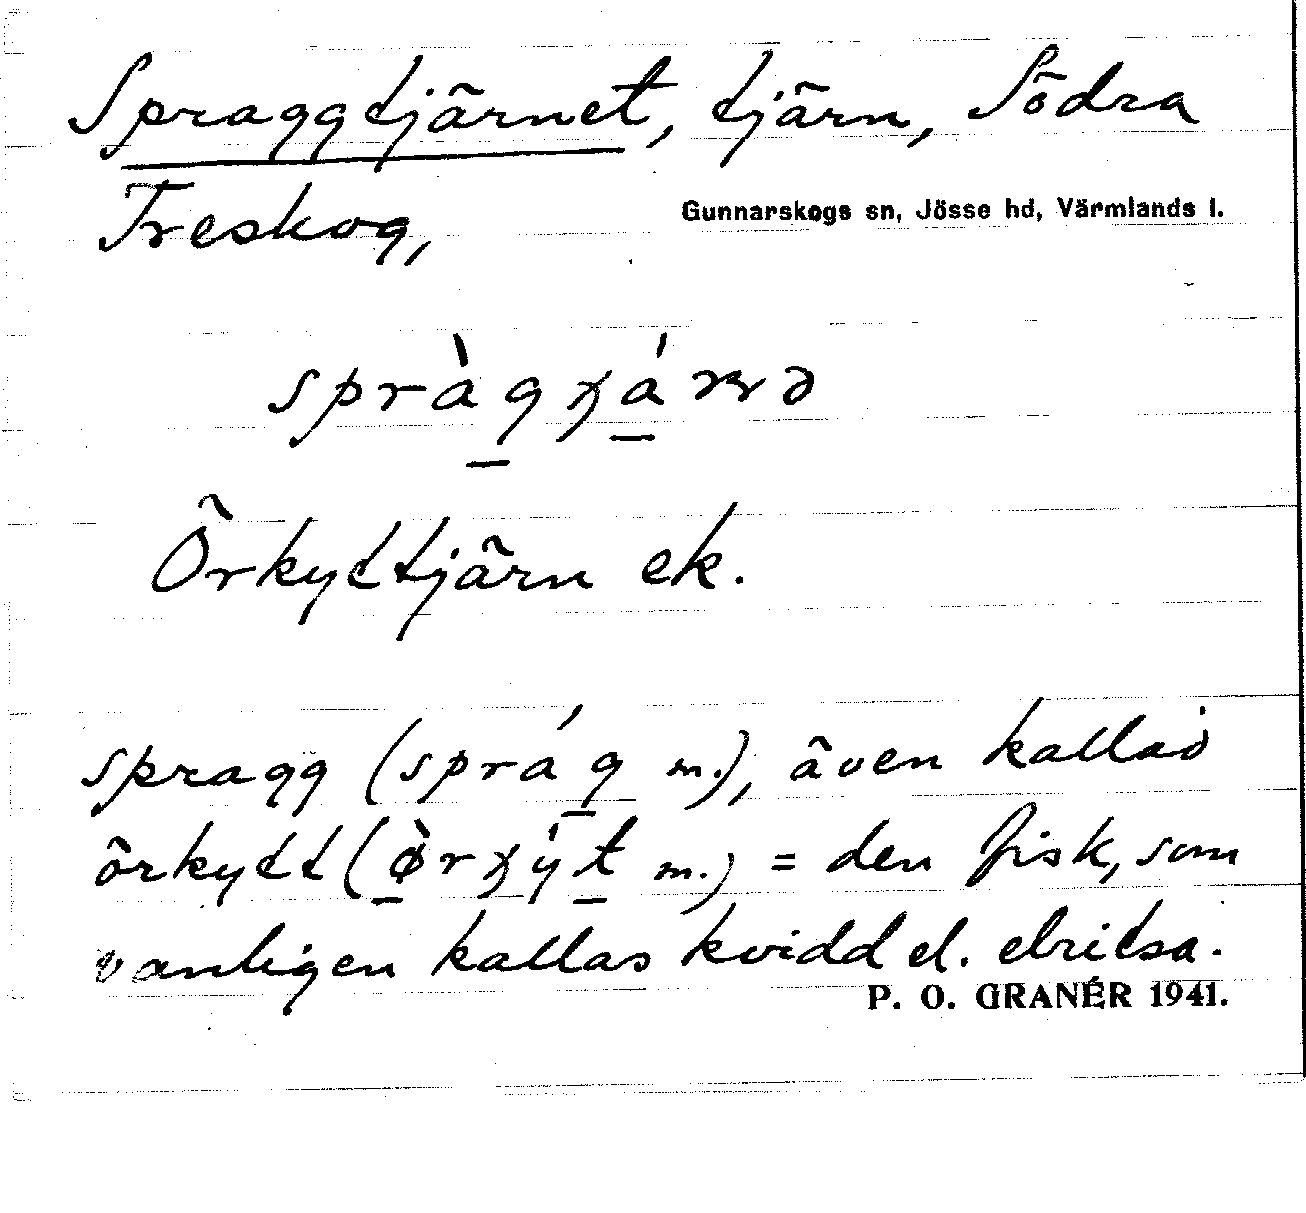 Spraggtjärnet, tjärn, Södra
Treskog,
Gunnarskogs sn, Jösse hd, Värmlands l.
Örkyttjärn ek.
spragg (språg m.), även kallad
örkytt ( m.) = den fisk, som
vanligen kallas kvidd el. elritsa.
P. O. GRANÉR 1941.